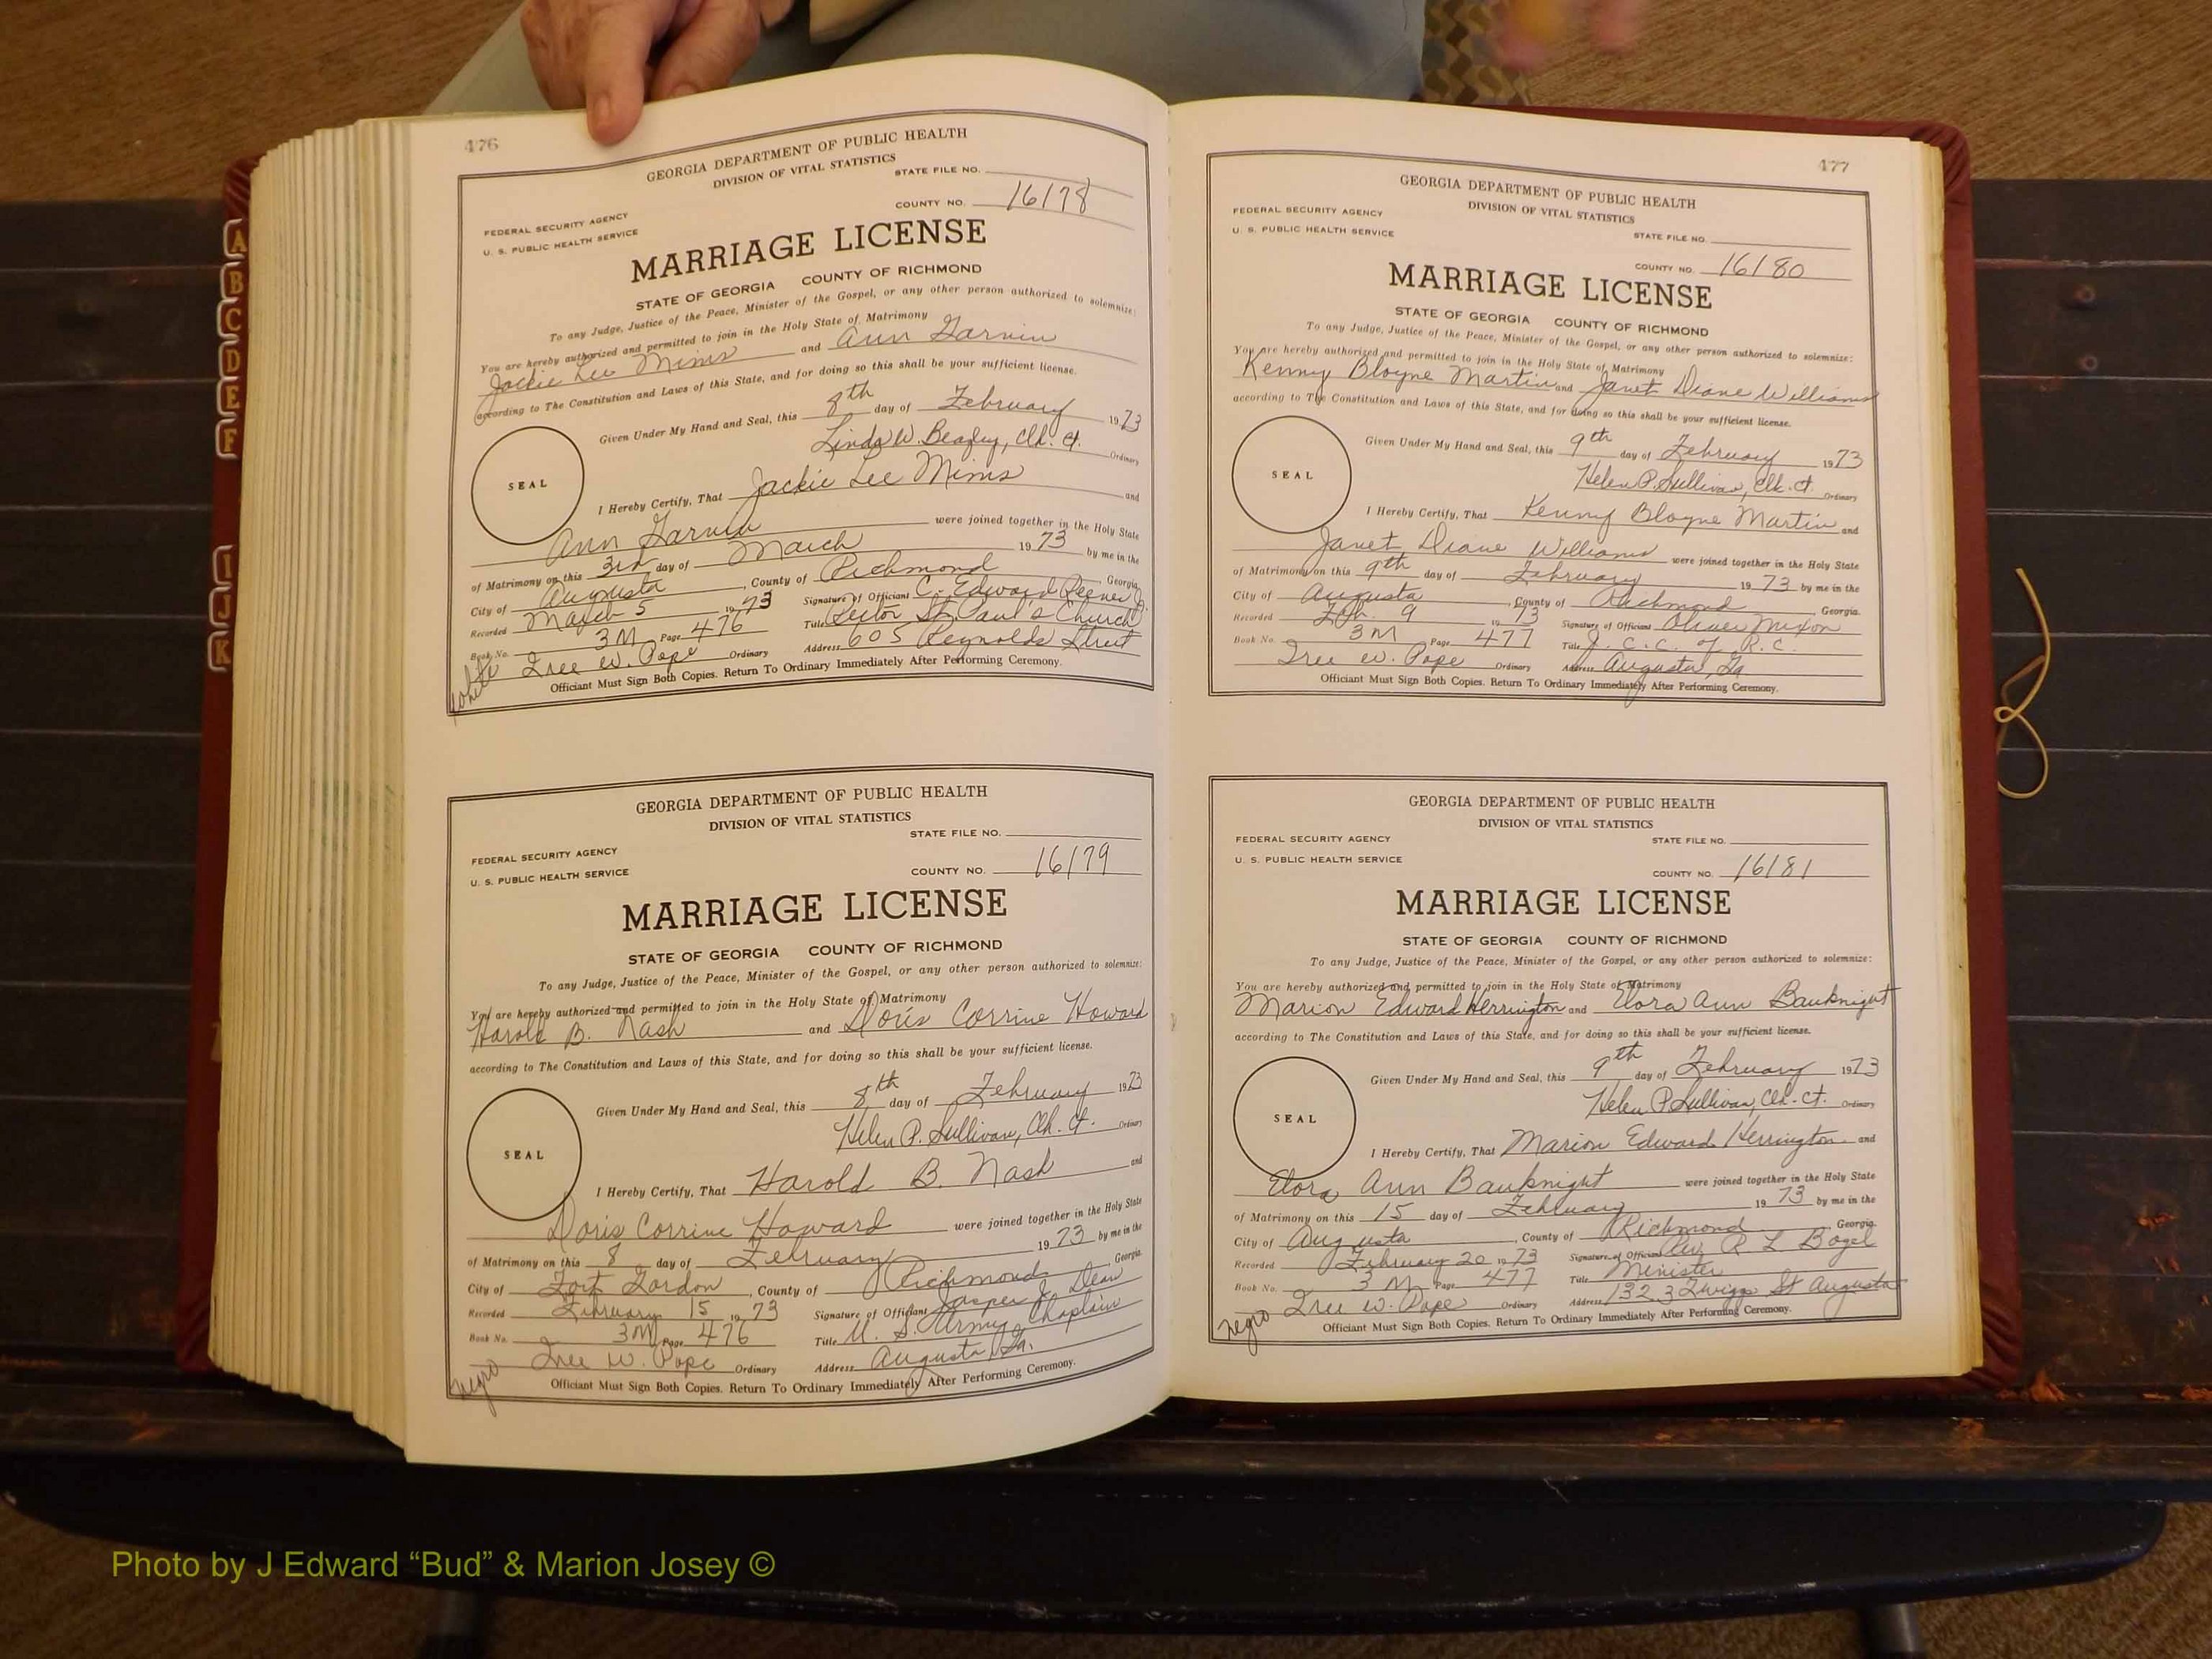 A
B
C
D
E
F
I
J
K
476
GEORGIA DEPARTMENT OF PUBLIC HEALTH
DIVISION OF VITAL STATISTICS
STATE FILE NO.
FEDERAL SECURITY AGENCY
U. S. PUBLIC HEALTH SERVICE
COUNTY NO. 16178
MARRIAGE LICENSE
STATE OF GEORGIA COUNTY OF RICHMOND
To any Judge, Justice of the Peace, Minister of the Gospel, or any other person authorized to solemnize:
You are hereby authorized and permitted to join in the Holy State of Matrimony
Jackie Lee Mims and Ann Garvin
according to The Constitution and Laws of this State, and for doing so this shall be your sufficient license.
Given Under My Hand and Seal, this 8th day of February 1973
Linda W. Beazley, Clk. Ct. Ordinary
SEAL
I Hereby Certify, That Jackie Lee Mims and
Ann Garvin were joined together in the Holy State
of Matrimony on this 3rd day of March 1973 by me in the
City of Augusta, County of Richmond, Georgia.
Recorded March 5 1973 Signature of Officiant C. Edward Reeves Jr.
Book No. 3M Page 476 Title Rector St. Paul's Church
Tree W. Pope Ordinary Address 605 Reynolds Street
Officiant Must Sign Both Copies. Return To Ordinary Immediately After Performing Ceremony.
White
GEORGIA DEPARTMENT OF PUBLIC HEALTH
DIVISION OF VITAL STATISTICS
STATE FILE NO.
FEDERAL SECURITY AGENCY
U. S. PUBLIC HEALTH SERVICE
COUNTY NO. 16179
MARRIAGE LICENSE
STATE OF GEORGIA COUNTY OF RICHMOND
To any Judge, Justice of the Peace, Minister of the Gospel, or any other person authorized to solemnize:
You are hereby authorized and permitted to join in the Holy State of Matrimony
Harold B. Nash and Doris Corrine Howard
according to The Constitution and Laws of this State, and for doing so this shall be your sufficient license.
Given Under My Hand and Seal, this 8th day of February 1973
Helen P. Sullivan, Clk. Ct. Ordinary
SEAL
I Hereby Certify, That Harold B. Nash and
Doris Corrine Howard were joined together in the Holy State
of Matrimony on this 8 day of February 1973 by me in the
City of Fort Gordon, County of Richmond, Georgia.
Recorded February 15 1973 Signature of Officiant Jasper J. Dean
Book No. 3M Page 476 Title U. S. Army Chaplain
Tree W. Pope Ordinary Address Augusta, Ga.
Officiant Must Sign Both Copies. Return To Ordinary Immediately After Performing Ceremony.
Negro
477
GEORGIA DEPARTMENT OF PUBLIC HEALTH
DIVISION OF VITAL STATISTICS
FEDERAL SECURITY AGENCY
U. S. PUBLIC HEALTH SERVICE
STATE FILE NO.
COUNTY NO. 16180
MARRIAGE LICENSE
STATE OF GEORGIA COUNTY OF RICHMOND
To any Judge, Justice of the Peace, Minister of the Gospel, or any other person authorized to solemnize:
You are hereby authorized and permitted to join in the Holy State of Matrimony
Kenny Blayne Martin and Janet Diane Williams
according to The Constitution and Laws of this State, and for doing so this shall be your sufficient license.
Given Under My Hand and Seal, this 9th day of February 1973
Helen P. Sullivan, Clk. Ct. Ordinary
SEAL
I Hereby Certify, That Kenny Blayne Martin and
Janet Diane Williams were joined together in the Holy State
of Matrimony on this 9th day of February 1973 by me in the
City of Augusta, County of Richmond, Georgia.
Recorded Feb. 9 1973 Signature of Officiant Oliver Mixon
Book No. 3M Page 477 Title J. C. C. of R. C.
Tree W. Pope Ordinary Address Augusta, Ga
Officiant Must Sign Both Copies. Return To Ordinary Immediately After Performing Ceremony.
GEORGIA DEPARTMENT OF PUBLIC HEALTH
DIVISION OF VITAL STATISTICS
FEDERAL SECURITY AGENCY
STATE FILE NO.
U. S. PUBLIC HEALTH SERVICE
COUNTY NO. 16181
MARRIAGE LICENSE
STATE OF GEORGIA COUNTY OF RICHMOND
To any Judge, Justice of the Peace, Minister of the Gospel, or any other person authorized to solemnize:
You are hereby authorized and permitted to join in the Holy State of Matrimony
Marion Edward Herrington and Elora Ann Bauknight
according to The Constitution and Laws of this State, and for doing so this shall be your sufficient license.
Given Under My Hand and Seal, this 9th day of February 1973
Helen P. Sullivan, Clk. Ct. Ordinary
SEAL
I Hereby Certify, That Marion Edward Herrington and
Elora Ann Bauknight were joined together in the Holy State
of Matrimony on this 15 day of February 1973 by me in the
City of Augusta, County of Richmond, Georgia.
Recorded February 20 1973 Signature of Officiant Rev. R L Bogel
Book No. 3M Page 477 Title Minister
Tree W. Pope Ordinary Address 1323 Twiggs St Augusta
Officiant Must Sign Both Copies. Return To Ordinary Immediately After Performing Ceremony.
Negro
Photo by J Edward “Bud” & Marion Josey ©